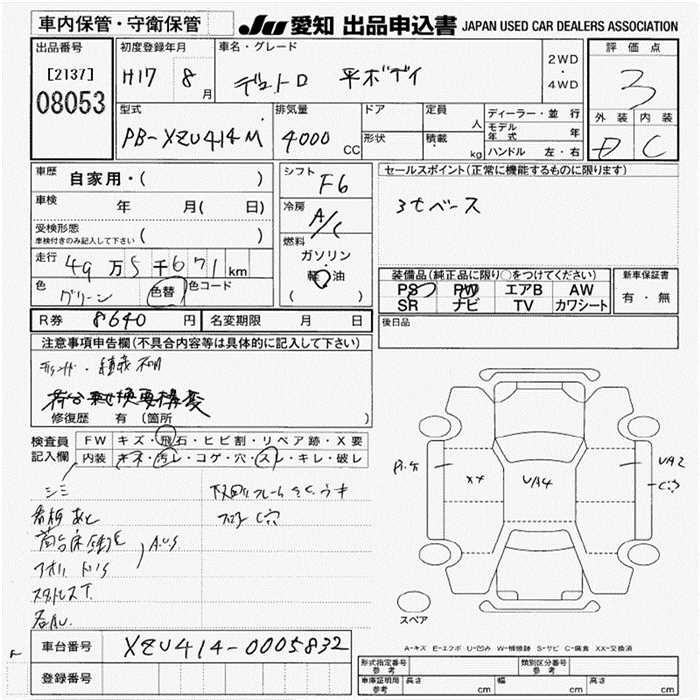 車内保管・守衛保管
JU 愛知 出品申込書 JAPAN USED CAR DEALERS ASSOCIATION
出品番号 初度登録年月 車名・グレード 2WD・4WD 評価点
[2137] H17 8月 デュトロ 平ボディ 3
08053
型式 排気量 ドア 定員 人 ディーラー・並行 外装 内装
PB-XZU414M 4000CC 形状 積載 kg モデル年式 年 D C
ハンドル 左・右
車歴 自家用・( ) シフト F6 セールスポイント(正常に機能するものに限ります)
車検 年 月( 日) 冷房 A/C 3tベース
受検形態 ( )
車検付きのみ記入して下さい
燃料 ガソリン
走行 49万5千671km 軽油
装備品(純正品に限り○をつけてください) 新車保証書
色 グリーン 色替 色コード ( ) PS PW エアB AW 有・無
SR ナビ TV カワシート
R券 8640円 名変期限 月 日 後日品
注意事項申告欄(不具合内容等は具体的に記入して下さい)
修復歴 有(箇所 )
検査員 FW キズ・飛石・ヒビ割・リペア跡・X要
記入欄 内装 キズ・汚レ・コゲ・穴・スレ・キレ・破レ
シミ
看板あと
A.U.S
XX UA4 UA2
スペア
A-キズ E-エクボ U-凹み W-補修跡 S-サビ C-腐食 XX-交換済
車台番号 XZU414-0005832
登録番号
形式指定番号 参考 類別区分番号 参考
車庫証明用 参考 長さ cm 幅 cm 高さ cm